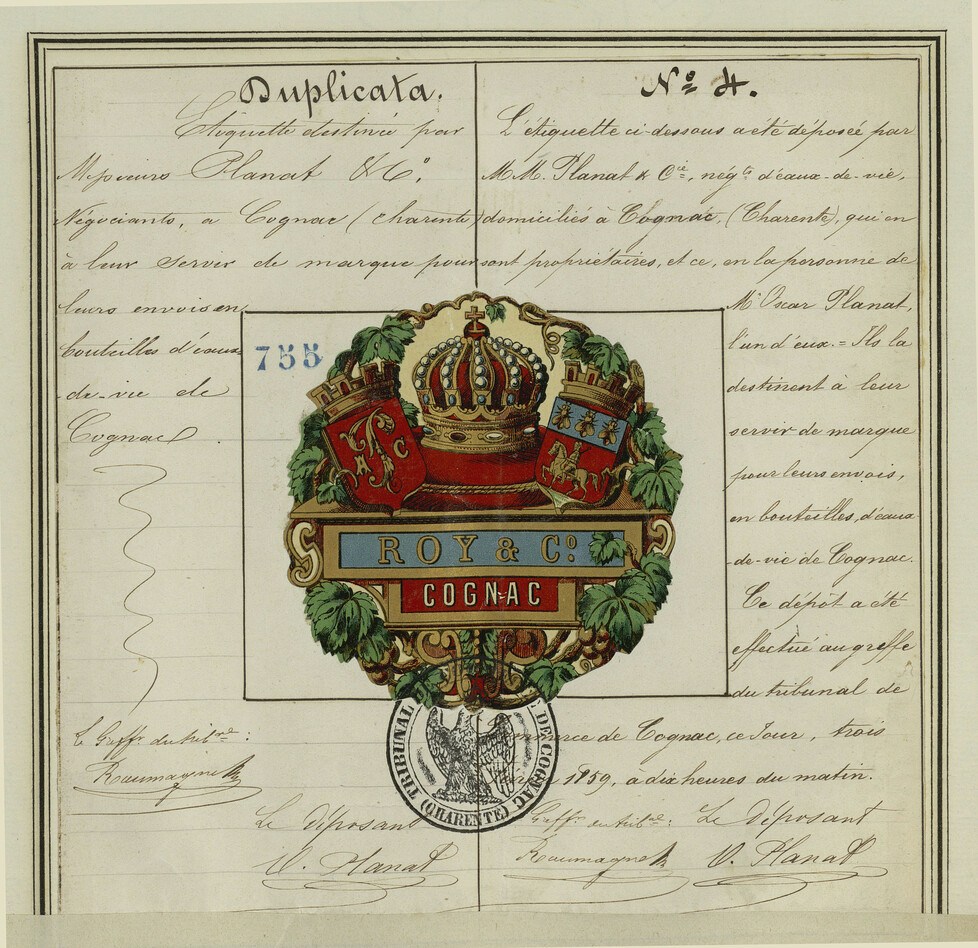 Duplicata.
Etiquette destinée par
Messieurs Planat & Cº,
Négociants, a Cognac (Charente)
à leur servir de marque pour
leurs envois en
bouteilles d'eaux-
-de-vie de
Cognac.
Le Greffr. du tribnal:
Le déposant
O. Planat
Nº 4.
L'étiquette ci-dessous a été déposée par
M.M. Planat & Cie, négts d'eaux-de-vie,
domiciliés à Cognac, (Charente), qui en
sont propriétaires, et ce, en la personne de
Mr Oscar Planat,
l'un d'eux. = Ils la
destinent à leur
servir de marque
pour leurs envois,
en bouteilles, d'eaux-
-de-vie de Cognac.
Ce dépôt a été
effectué au greffe
du tribunal de
commerce de Cognac, ce jour, trois
1859, a dix heures du matin.
Greffr. du tribnal: Le déposant
O. Planat
755
C
ROY & Cº
COGNAC
TRIBUNAL DE COGNAC
(CHARENTE)